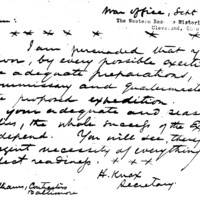 War office, Sept
The Western Res Histori
Cleveland, O
* * * *
I am persuaded that y
own, by every possible exerti
adequate preparation,
ommissary and Quartermaste
proposed expedition
your adequate and seas
the whole success of the E
depend. You will see the
gent necessity of everything
fect readiness. * * *
H. Knox
Secretary.
Contractors
Baltimore